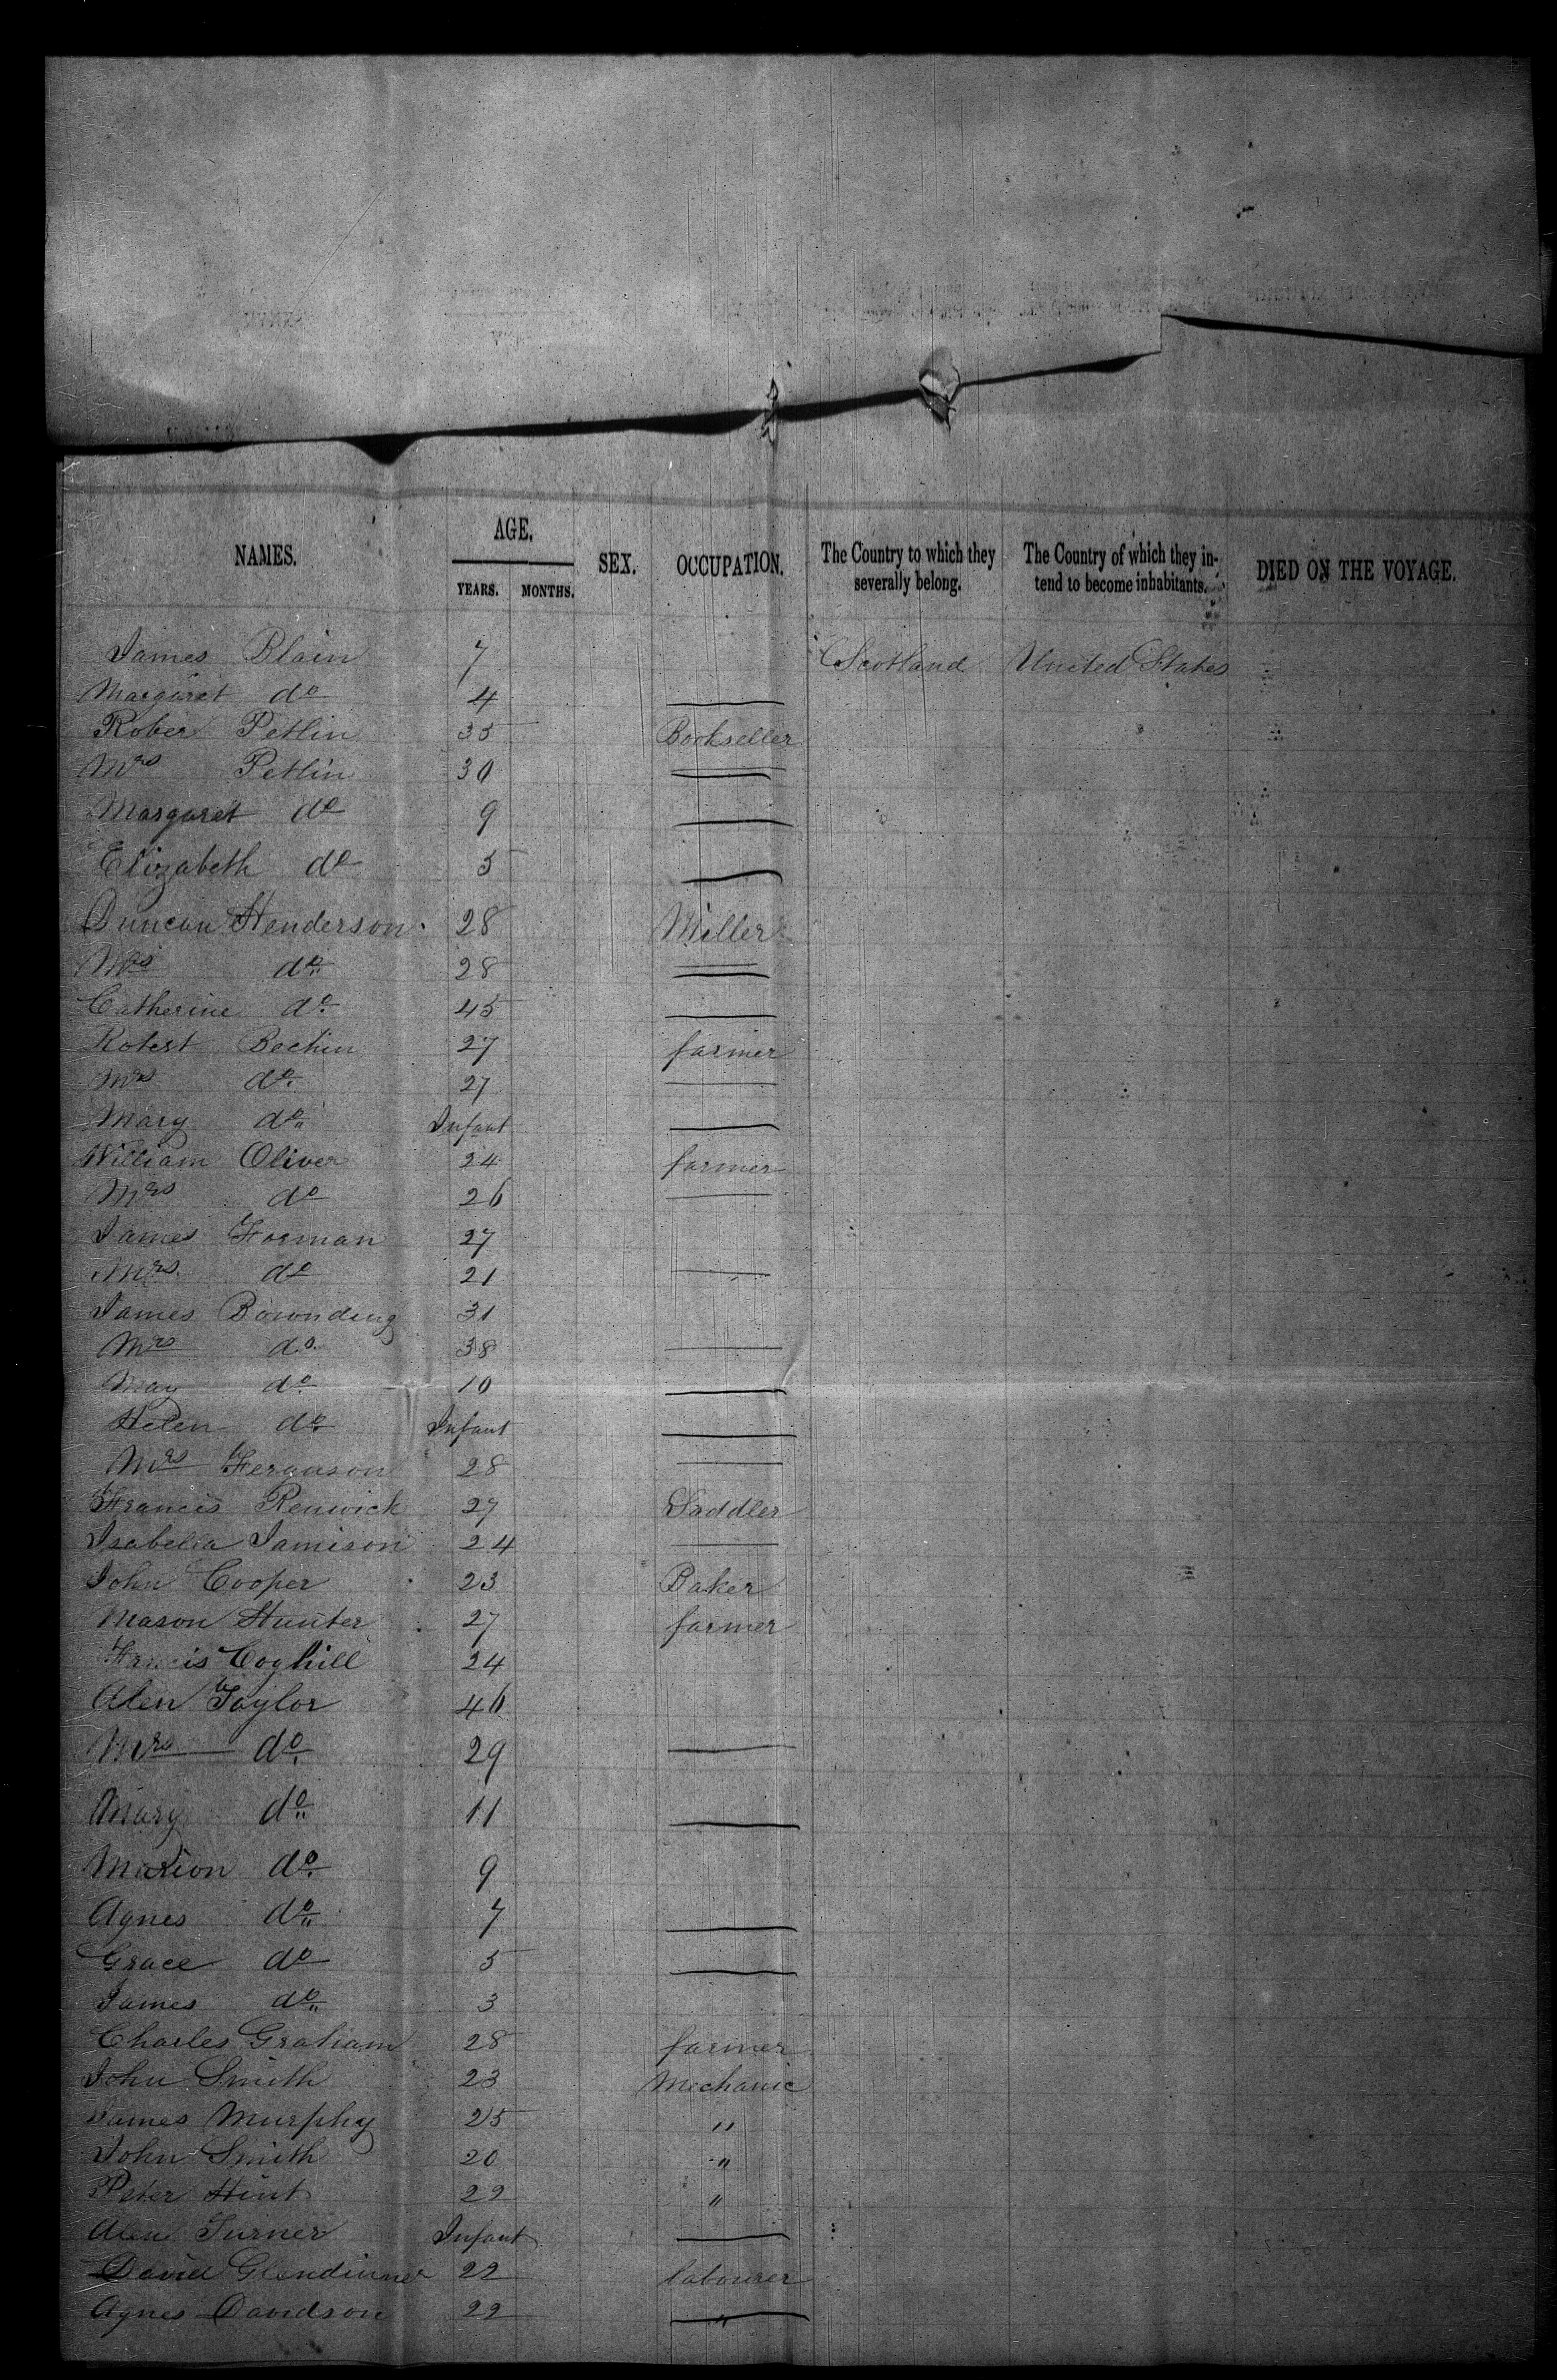 NAMES. AGE. YEARS. MONTHS. SEX. OCCUPATION. The Country to which they severally belong. The Country of which they intend to become inhabitants. DIED ON THE VOYAGE.
James Blain 7 Scotland United States
Margaret do 4
Rober Petlin 35 Bookseller
Mrs Petlin 30
Margaret do 9
Elizabeth do 5
Duncan Henderson 28 Miller
Mrs do 28
Catherine do 45
Robert Bechin 27 farmer
Mrs do 27
Mary do Infant
William Oliver 24 farmer
Mrs do 26
James Forman 27
Mrs do 21
James Bownding 31
Mrs do 38
May do 10
Helen do Infant
Mrs Ferguson 28
Francis Renwick 27 Saddler
Isabella Jamison 24
John Cooper 23 Baker
Mason Hunter 27 farmer
Francis Coghill 24
Alen Taylor 46
Mrs do 29
Mary do 11
Marion do 9
Agnes do 7
Grace do 5
James do 3
Charles Graham 28 farmer
John Smith 23 Mechanic
James Murphy 25 "
John Smith 20 "
Peter Hint 22 "
Alen Turner Infant
David Glendinner 22 labourer
Agnes Davidson 22 "